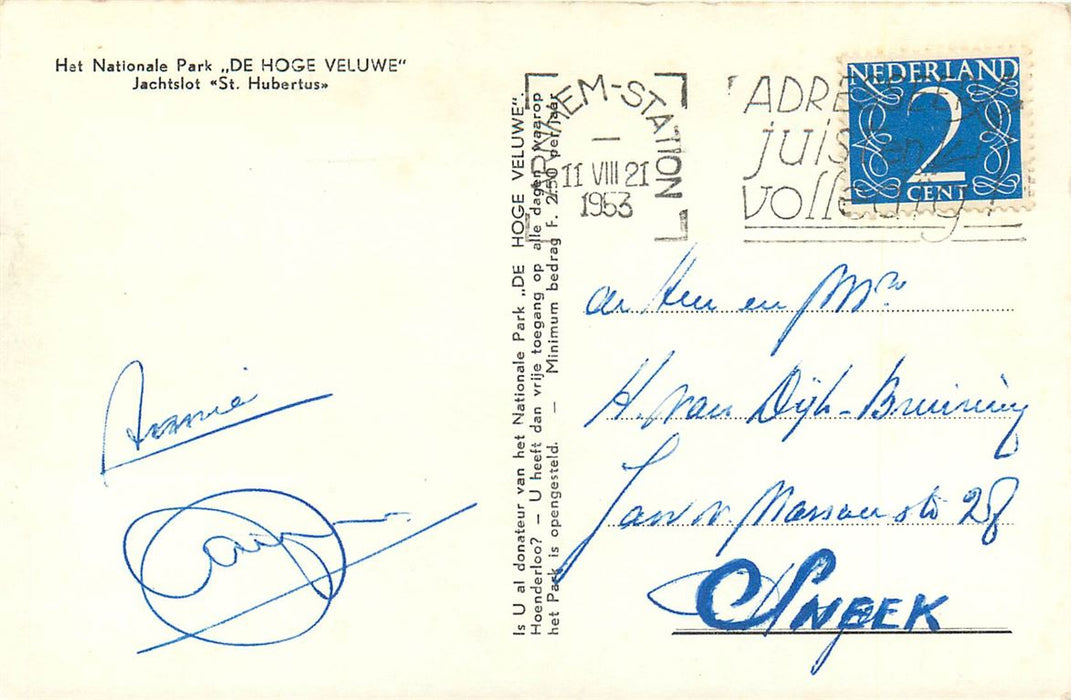 Het Nationale Park „DE HOGE VELUWE"
Jachtslot «St. Hubertus»
ARNHEM-STATION
11 VIII 21
1953
ADRESSEER
juist en
volledig!
NEDERLAND
2
CENT
Is U al donateur van het Nationale Park „DE HOGE VELUWE".
Hoenderloo? – U heeft dan vrije toegang op alle dagen waarop
het Park is opengesteld. – Minimum bedrag F. 2.50 per jaar
de Heer en Mevr
H. van Dijk-Bruining
Jan v. Nassaustr 28
SNEEK
Annie